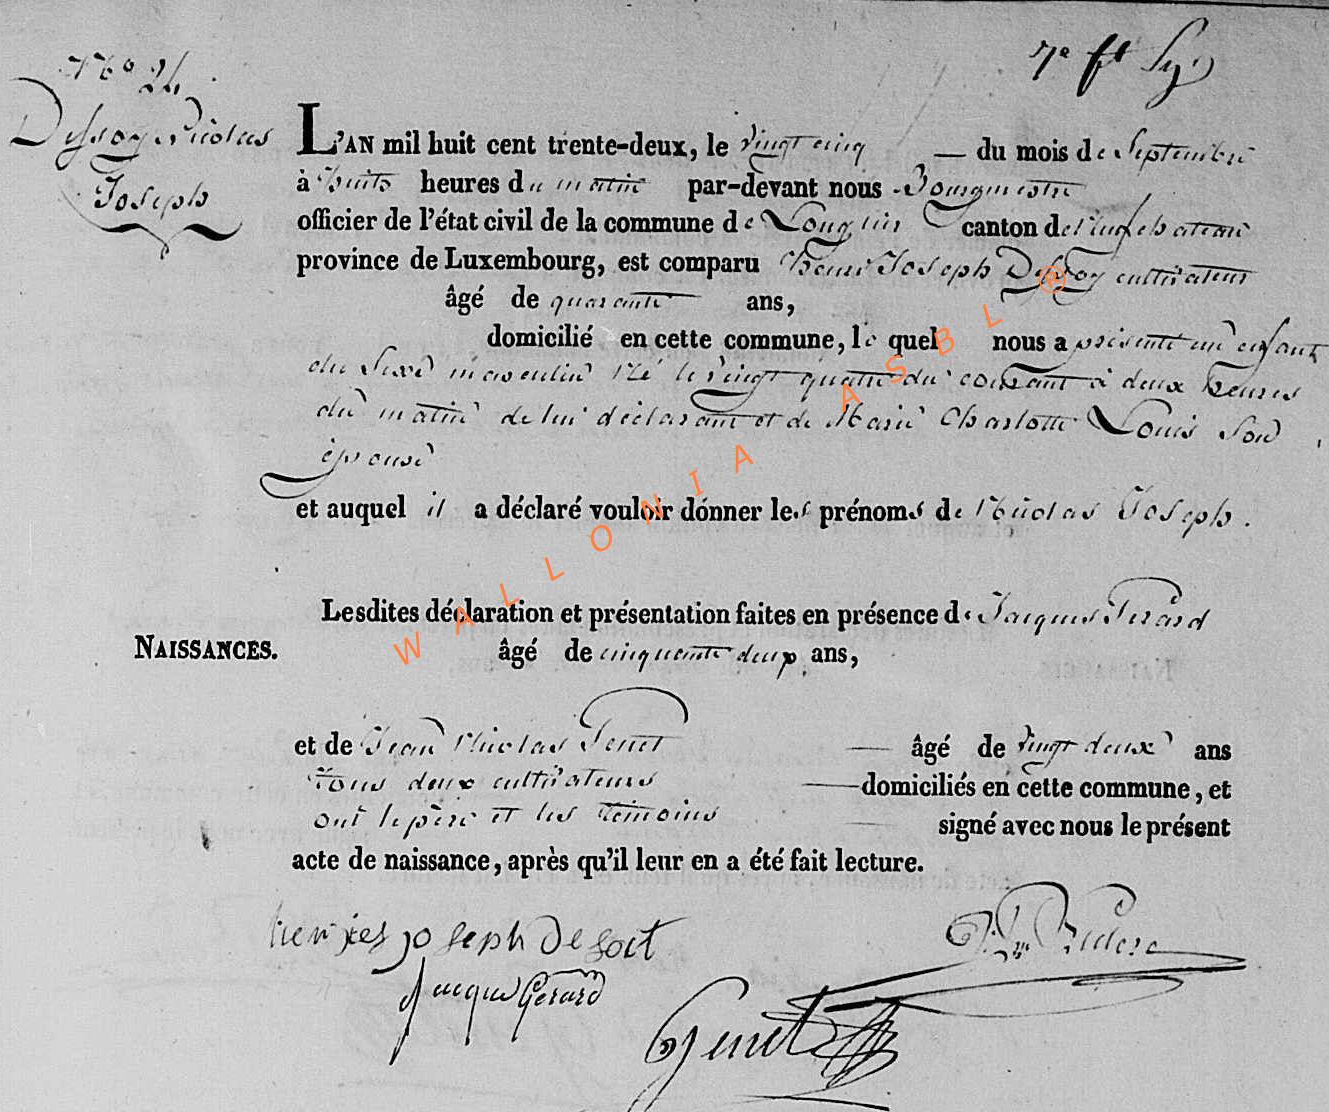 7e ft
N° 24
Dessoy Nicolas
Joseph
L'AN mil huit cent trente-deux, le vingt cinq — du mois de Septembre
à huit heures du matin par-devant nous Bourgmestre
officier de l'état civil de la commune de Longlier canton de Neufchateau
province de Luxembourg, est comparu Henri Joseph Dessoy cultivateur
âgé de quarante ans,
domicilié en cette commune, le quel nous a présenté un enfant
du Sexe masculin né le vingt quatre du courant à deux heures
du matin de lui déclarant et de Marie Charlotte Louis Son
épouse
et auquel il a déclaré vouloir donner les prénoms de Nicolas Joseph.
Lesdites déclaration et présentation faites en présence de Jacques Gerard
NAISSANCES.
âgé de cinquante deux ans,
et de Jean Nicolas Genet — âgé de vingt deux ans
tous deux cultivateurs — domiciliés en cette commune, et
ont le père et les témoins signé avec nous le présent
acte de naissance, après qu'il leur en a été fait lecture.
joseph Desoit
Jacques Gerard
Genet
WALLONIA ASBL ®